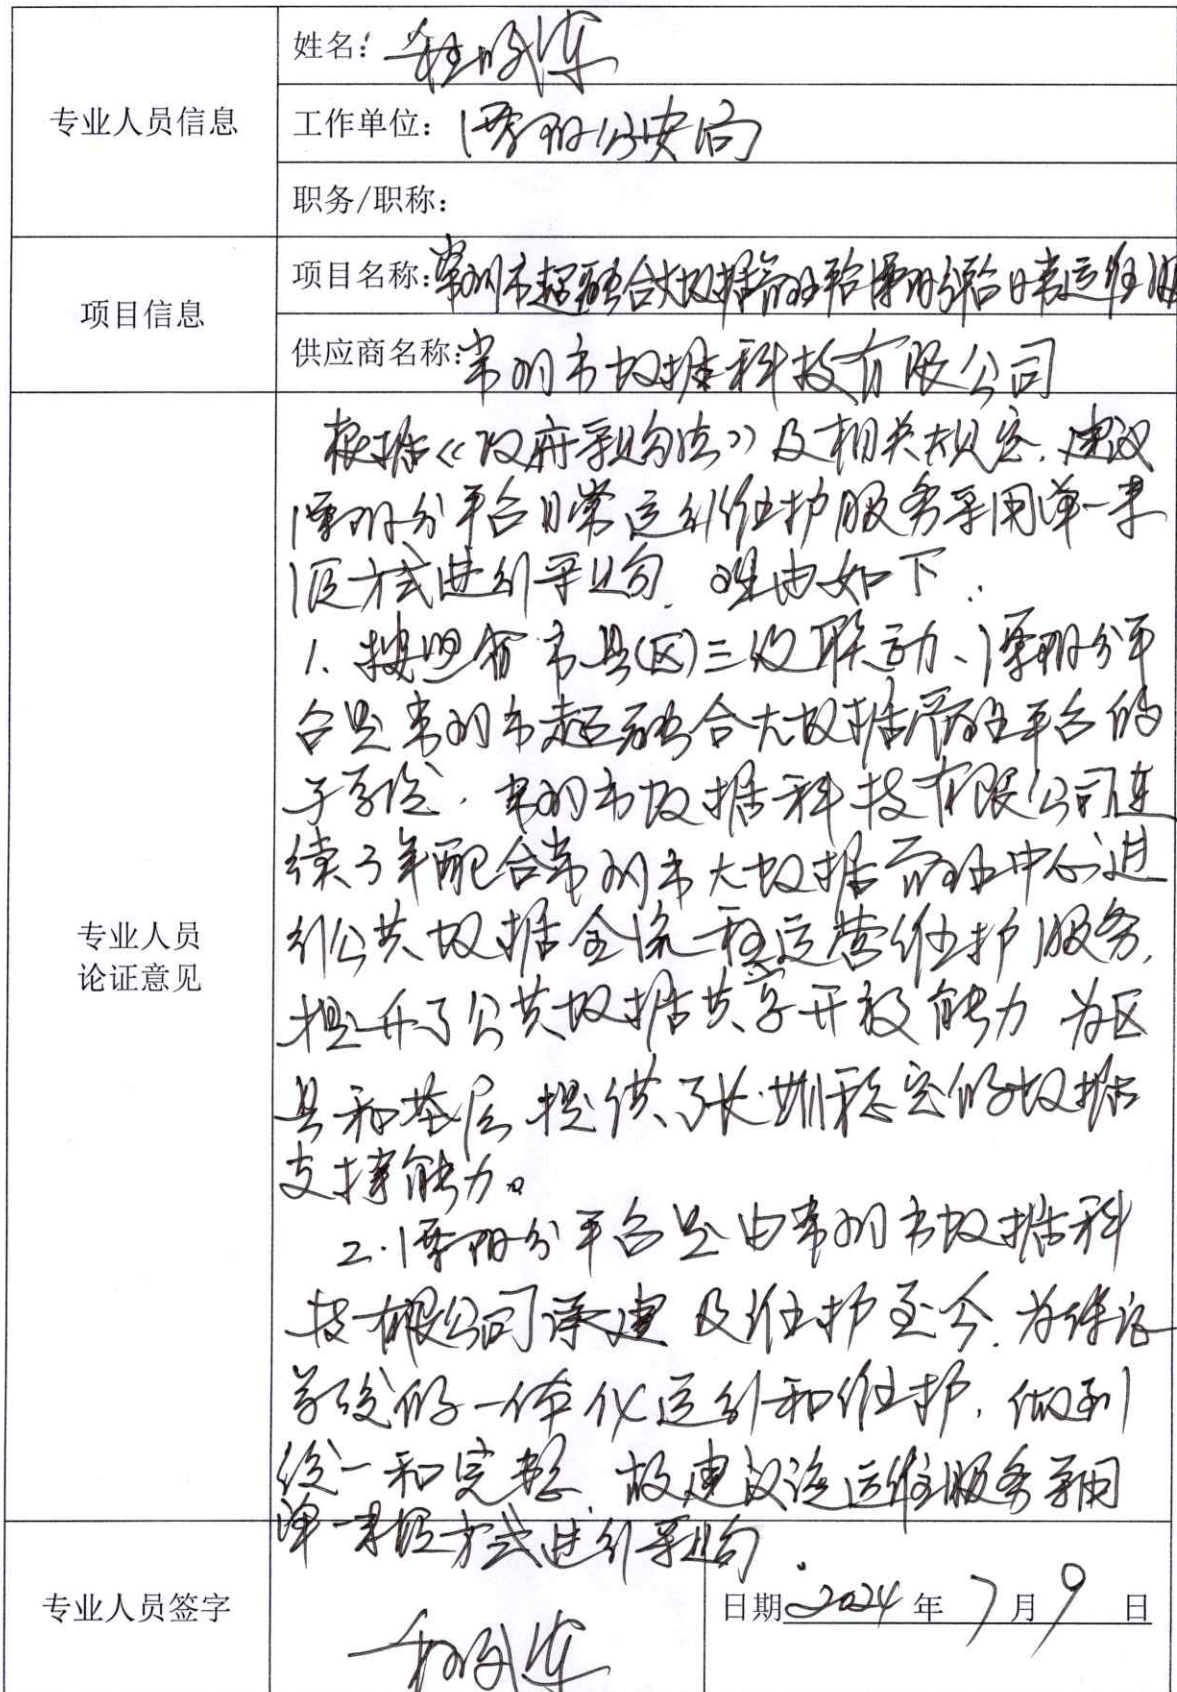 专业人员信息
姓名：
工作单位：溧阳公安局
职务/职称：
项目信息
项目名称：常州市超融合大数据治理平台溧阳分平台日常运维服
供应商名称：常州市数据科技有限公司
专业人员
论证意见
根据《政府采购法》及相关规定，建议
溧阳分平台日常运行维护服务采用单一来
源方式进行采购，理由如下：
1、按照省市县(区)三级联动、溧阳分平
台是常州市超融合大数据治理平台的
子系统，常州市数据科技有限公司连
续3年配合常州市大数据管理中心进
行公共数据全流程运营维护服务，
提升了公共数据共享开放能力 为区
县和基层提供了长期稳定的数据
支撑能力。
2.溧阳分平台是由常州市数据科
技有限公司承建及维护至今，为保证
系统的一体化运行和维护，做到
统一和完整，故建议该运维服务采用
单一来源方式进行采购.
专业人员签字
日期 2024 年 7 月 9 日